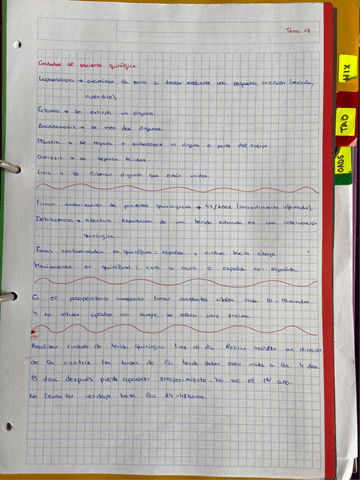 Tema 12
Cuidados de paciente quirúrgico
Laparoscopia → examinar la zona a tratar mediante una pequeña incisión (vesícula,
apéndice).
Ectomía → se extirpa un órgano.
Anastomosis → se unen dos órganos.
Plastia → se repara o embellece un órgano o parte del cuerpo.
Diéresis → se separan tejidos.
Lisis → se liberan órganos que están unidos.
Firmar autorización de pacientes quirúrgicos → 41/2002 (consentimiento informado).
Dehiscencia → abertura espontánea de una herida suturada en una intervención
quirúrgica.
Zonas contaminadas en quirófano: espalda y cintura hacia abajo.
Movimientos en quirófano: cara a cara o espalda con espalda.
En el postoperatorio inmediato tomar constantes vitales cada 10-15 minutos
y no retirar apósitos con sangre, se coloca otro encima.
Realizar cuidado de herida quirúrgica 1 vez al día. Retirar apósito en dirección
de la cicatriz. Los bordes de la herida deben estar unidos a los 4 días
15 días después puede aparecer enrojecimiento. No sol el 1er año.
No levantar vendaje hasta las 24-48 horas.
HIX
TAO
OADS